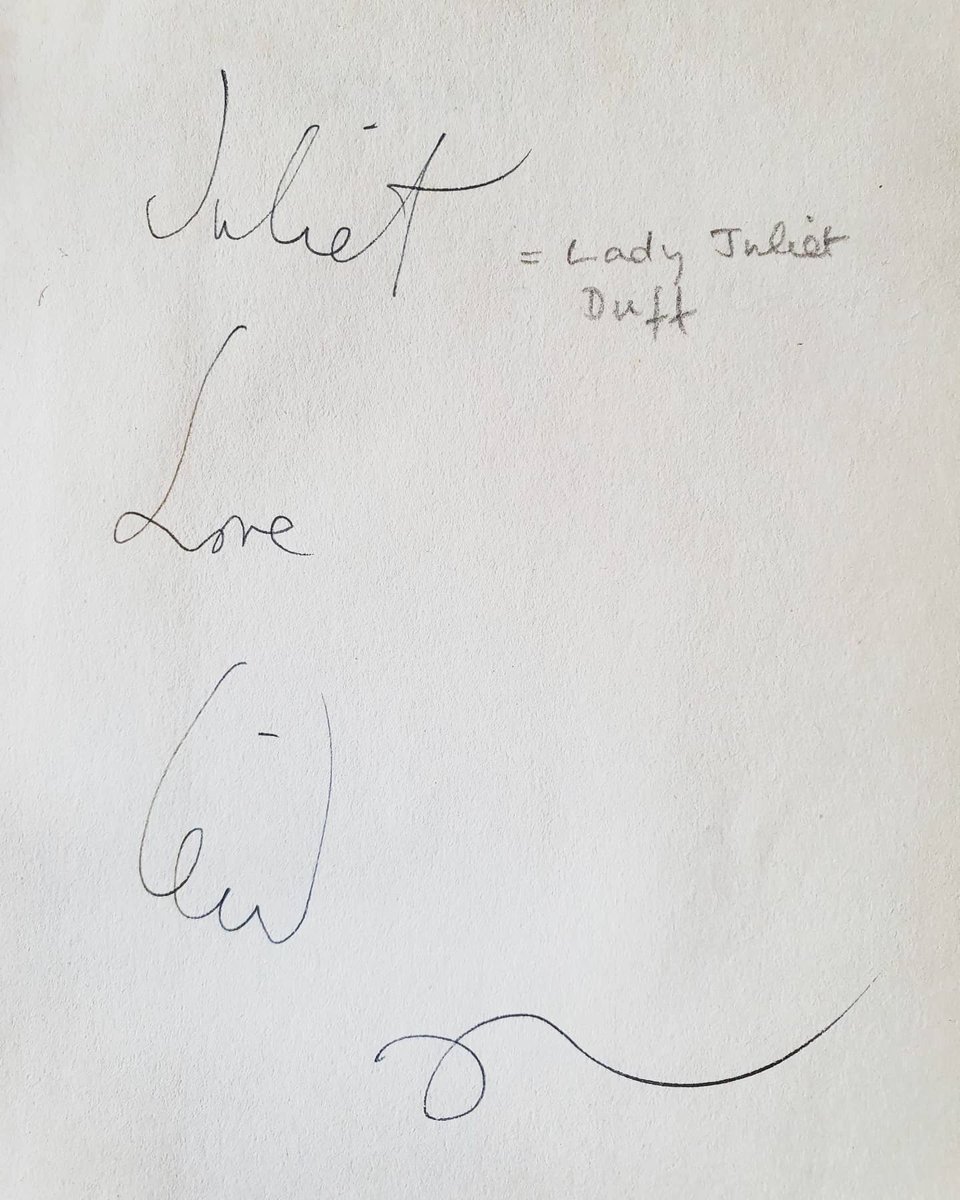 Juliet
= Lady Juliet
Duff
Love